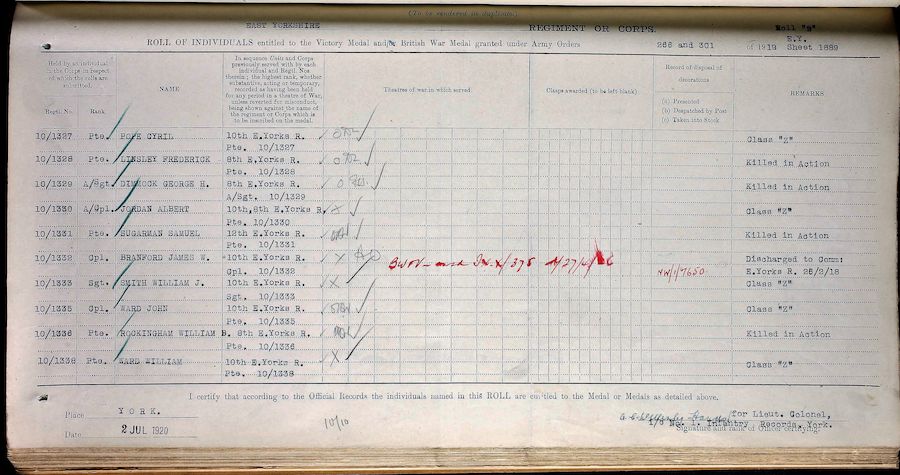 (To be rendered in duplicate)
EAST YORKSHIRE REGIMENT OR CORPS. Roll "B"
E.Y.
ROLL OF INDIVIDUALS entitled to the Victory Medal and/or British War Medal granted under Army Orders 266 and 301 of 1919 Sheet 1889
Held by an individual in the Corps in respect of which the rolls are submitted.
NAME
In sequence Units and Corps previously served with by each individual and Regtl. Nos therein; the highest rank, whether substantive, acting or temporary, recorded as having been held for any period in a theatre of War, unless reverted for misconduct, being shown against the name of the regiment or Corps which is to be inscribed on the medal.
Theatres of war in which served
Clasps awarded (to be left blank)
Record of disposal of decorations
(a) Presented
(b) Despatched by Post
(c) Taken into Stock
REMARKS
Regtl. No. Rank
10/1327 Pte. POPE CYRIL 10th E.Yorks R. Class "Z"
Pte. 10/1327
10/1328 Pte. LINSLEY FREDERICK 8th E.Yorks R. Killed in Action
Pte. 10/1328
10/1329 A/Sgt. DIMMOCK GEORGE H. 8th E.Yorks R. Killed in Action
A/Sgt. 10/1329
10/1330 A/Cpl. JORDAN ALBERT 10th,8th E.Yorks R. X Class "Z"
Pte. 10/1330
10/1331 Pte. SUGARMAN SAMUEL 12th E.Yorks R. Killed in Action
Pte. 10/1331
10/1332 Cpl. BRANFORD JAMES W. 10th E.Yorks R. X Discharged to Comm:
Cpl. 10/1332 NW/1/7650 E.Yorks R. 26/2/18
10/1333 Sgt. SMITH WILLIAM J. 10th E.Yorks R. X Class "Z"
Sgt. 10/1333
10/1335 Cpl. WARD JOHN 10th E.Yorks R. Class "Z"
Pte. 10/1335
10/1336 Pte. ROCKINGHAM WILLIAM B. 8th E.Yorks R. Killed in Action
Pte. 10/1336
10/1338 Pte. WARD WILLIAM 10th E.Yorks R. X Class "Z"
Pte. 10/1338
I certify that according to the Official Records the individuals named in this ROLL are entitled to the Medal or Medals as detailed above.
Place YORK. for Lieut. Colonel,
i/c No. 1. Infantry Records, York.
Date 2 JUL 1920 10/10 Signature and rank of Officer certifying.